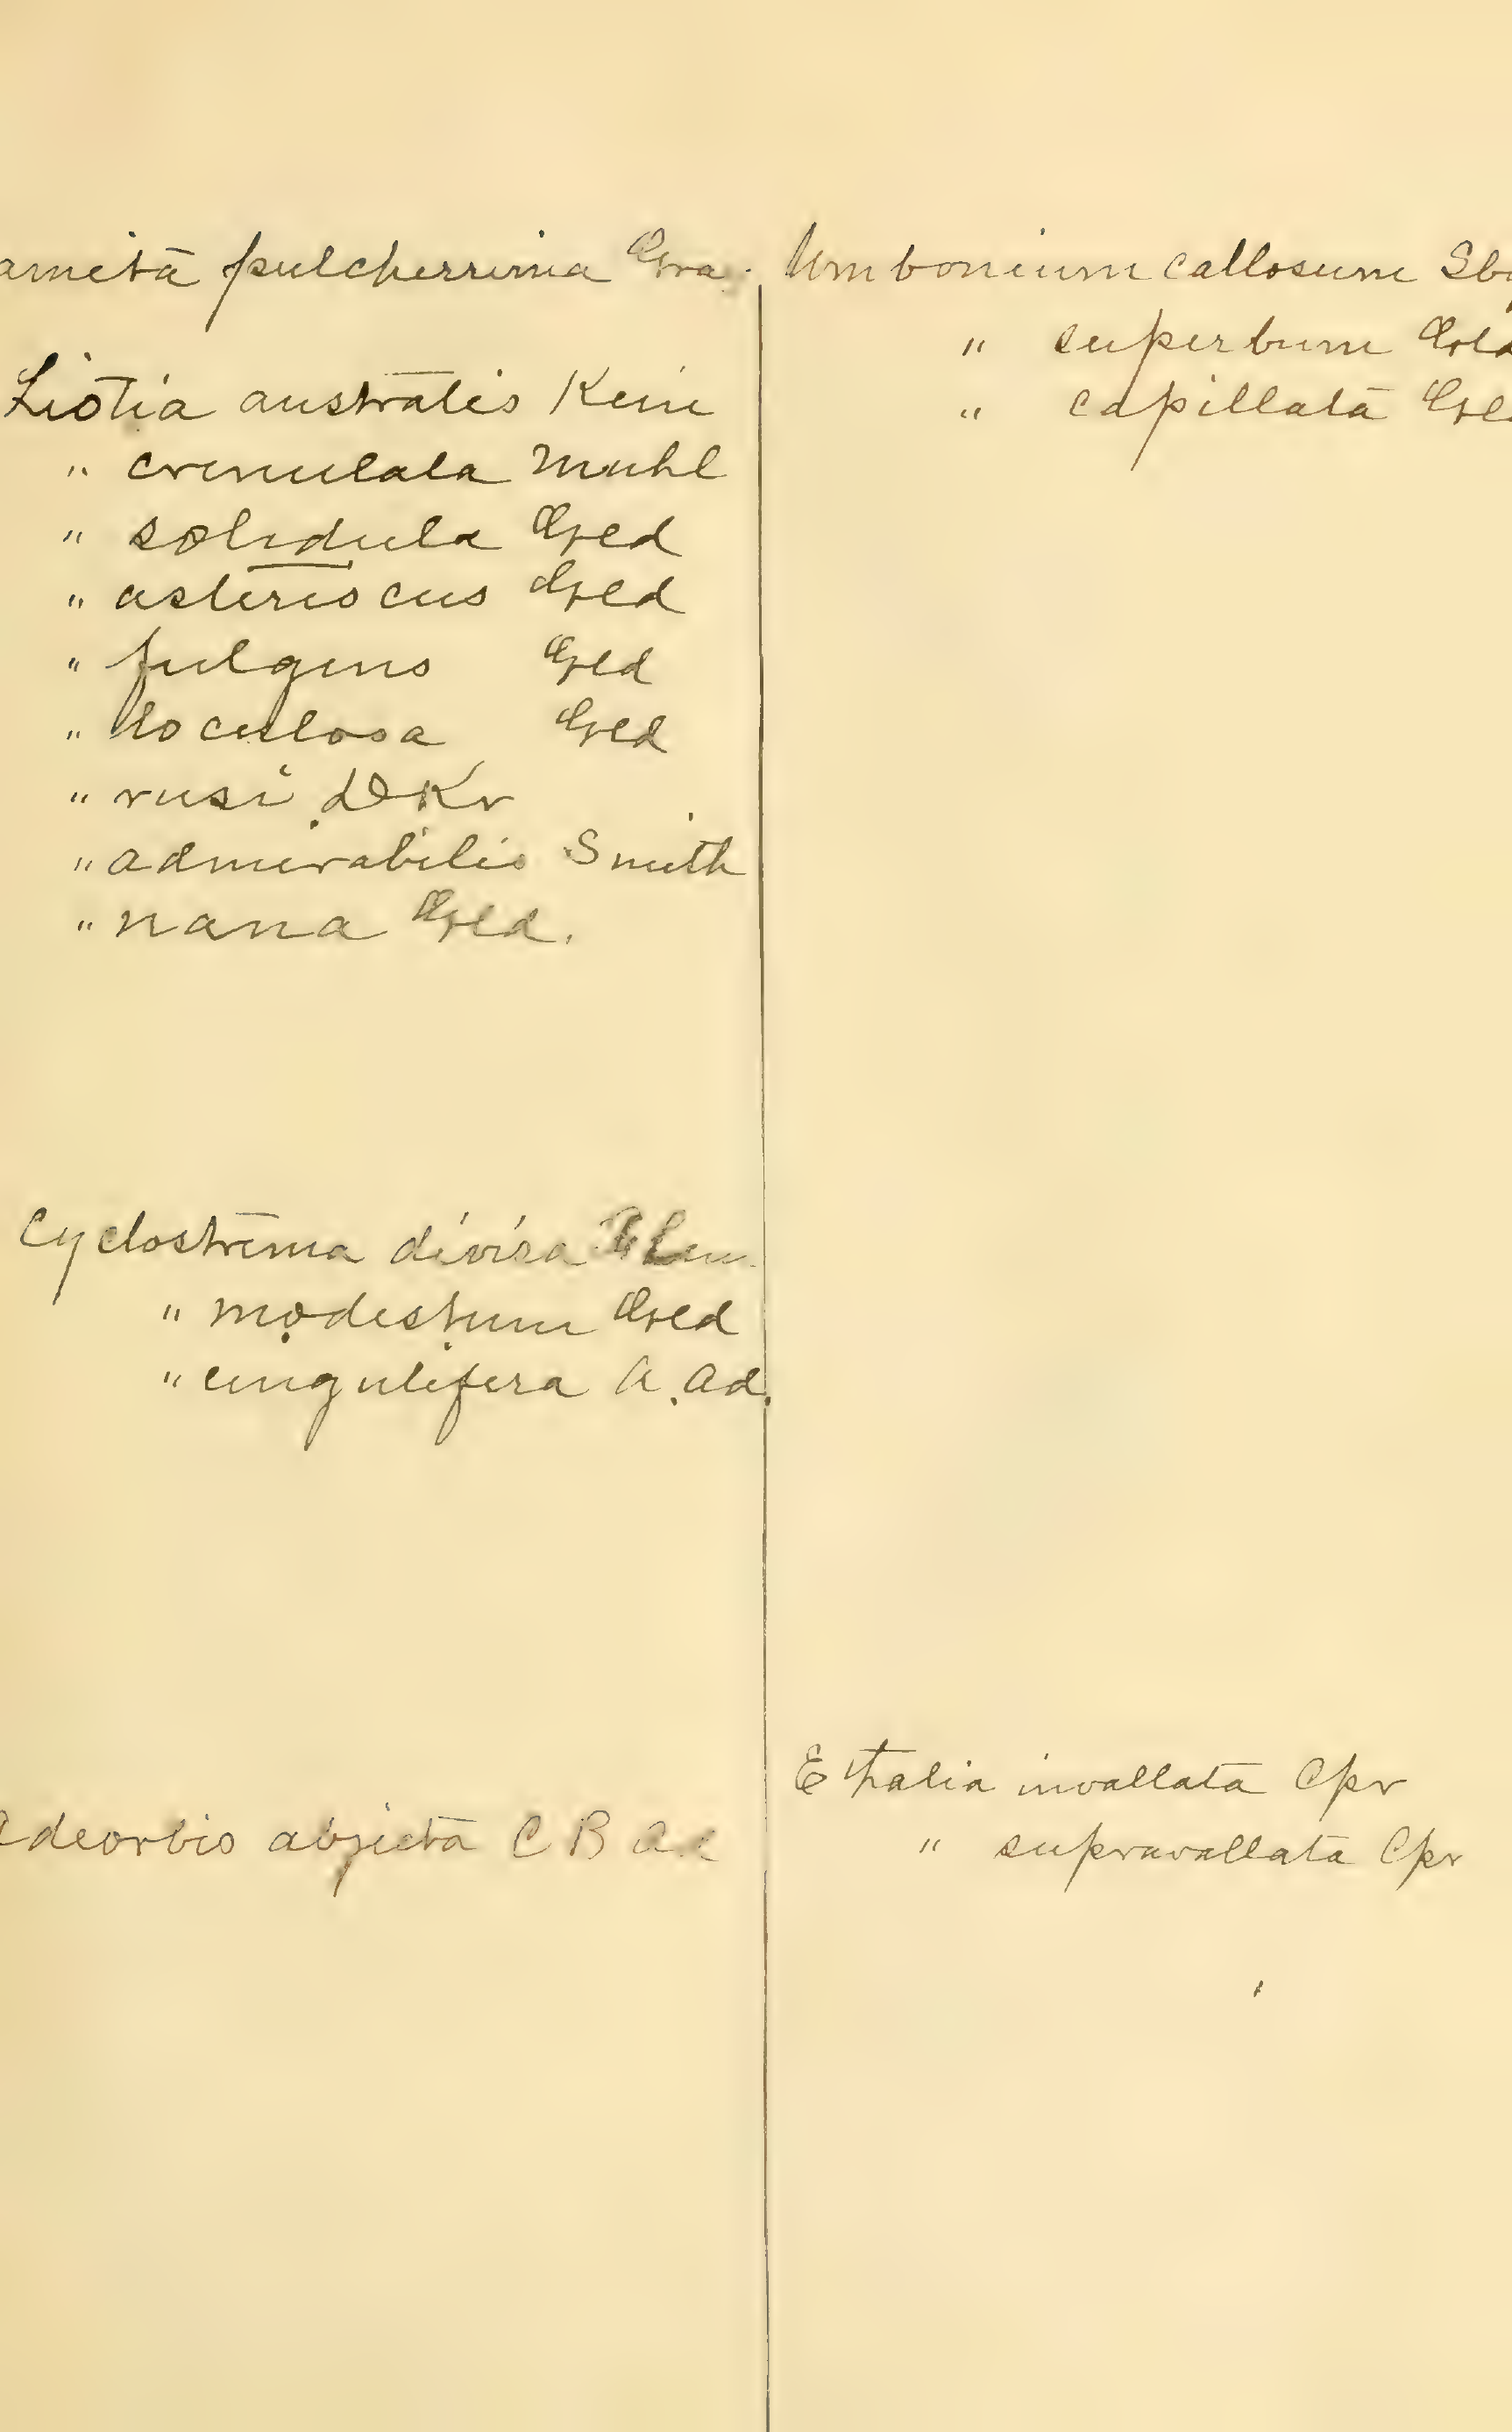 ameta pulcherrima Gra.
Liotia australis Kein
" crenulata Muhl
" solidula Gld
" asteriscus Gld
" fulgens Gld
" loculosa Gld
" rusi DKr
" admirabilis Smith
" nana Gld.
Cyclostrema divisa
" modestum Gld
" cingulifera A. Ad.
Adeorbis abjecta C B Ad
Umbonium callosum Sby
" superbum Gld
" capillata Gld
Ethalia invallata Cpr
" supravallata Cpr